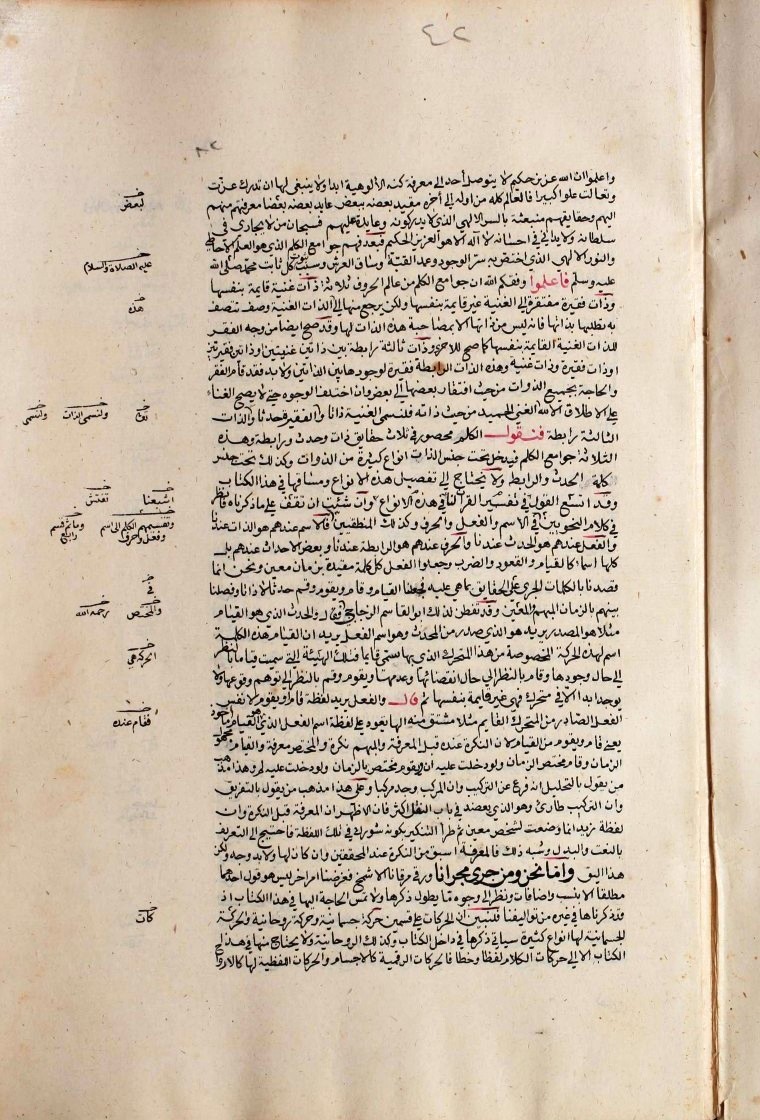 ٤٢
واعلموا ان الله عزيز حكيم لا يتوصل أحد إلى معرفة كنه الألوهية ابدا ولا ينبغي لها ان تدرك عزت
وتعالت علوا كبيرا فالعالم كله من اوله إلى آخره مقيد بعضه ببعض عابد بعضه بعضا معرفتهم منهم
اليهم وحقايقهم منبعثة بالسر الالهي الذي لا يدركونه وعايدة عليهم فسبحان من لا يجارى في
سلطانه ولا يدانى في احسانه لا اله الا هو العزيز الحكيم فبعد فهم جوامع الكلم الذي هو العلم الاحاطي
والنور الالهي الذي اختص به سر الوجود وعمد القبة وساق العرش وسبب ثبوت كل ثابت محمد صلى الله
عليه وسلم فاعلموا وفقكم الله ان جوامع الكلم من عالم الحروف ثلاثة ذات غنية قايمة بنفسها
وذات فقيرة مفتقرة إلى الغنية غير قايمة بنفسها ولكن يرجع منها إلى الذات الغنية وصف تتصف
به تطلبها بذاتها فانه ليس من ذاتها الا بمصاحبة هذه الذات لها وقد صح ايضا من وجه الفقر
للذات الغنية القايمة بنفسها كما صح للاخرى وذات ثالثة رابطة بين ذاتين غنيتين او ذاتين فقيرتين
او ذات فقيرة وذات غنية وهذه الذات الرابطة فقيرة لوجود هاتين الذاتين ولا بد فقد قام الفقر
والحاجة بجميع الذوات من حيث افتقار بعضها إلى بعض وان اختلفت الوجوه حتى لا يصح الغناء
على الاطلاق الا لله الغني الحميد من حيث ذاته فلنسمي الغنية ذاتا والفقيرة حدثا والذات
الثالثة رابطة فنقول الكلم محصور في ثلاث حقايق ذات وحدث ورابطة وهذه
الثلاثة جوامع الكلم فيدخل تحت جنس الذات انواع كثيرة من الذوات وكذلك تحت جنس
كلمة الحدث والرابط ولا يحتاج إلى تفصيل هذه الانواع ومساقها في هذا الكتاب
وقد اتسع القول في تفسير القرآن لنا في هذه الانواع وان شئت ان تقف على ما ذكرناه فانظر
في كلام النحويين في الاسم والفعل والحرف وكذلك المنطقيين فالاسم عندهم هو الذات عندنا
والفعل عندهم هو الحدث عندنا والحرف عندهم هو الرابطة عندنا وبعض الاحداث عندهم بل
كلها اسما كالقيام والقعود والضرب وجعلوا الفعل كل كلمة مقيدة بزمان معين ونحن انما
قصدنا بالكلمات الجري على الحقايق بما هي عليه فجعلنا القيام وقام ويقوم وقم حدثا لا ذاتا وفصلنا
بينهم بالزمان المبهم والمعين وقد تفطن لذلك ابو القاسم الزجاجي فقال والحدث الذي هو القيام
مثلا هو المصدر يريد هو الذي صدر من المحدث وهو اسم الفعل يريد ان القيام هذه الكلمة
اسم لهذه الحركة المخصوصة من هذا المتحرك الذي بها سمي قايما فتلك الهيئة التي سميت قياما بالنظر
إلى حال وجودها وقام بالنظر إلى حال انقضائها وعدمها ويقوم وقم بالنظر إلى توهم وقوعها ولا
يوجد ابدا الا في متحرك فهي غير قايمة بنفسها ثم قال والفعل يريد لفظة قام ويقوم لا نفس
الفعل الصادر من المتحرك القايم مثلا مشتق منه الها يعود على لفظة اسم الفعل الذي هو القيام ماخوذ
يعني قام ويقوم من القيام لان النكرة عنده قبل المعرفة والمبهم نكرة والمختص معرفة والقيام مجهول
الزمان وقام مختص الزمان ولو دخلت عليه ان ويقوم مختص بالزمان ولو دخلت عليه لم وهذا مذهب
من يقول بالتحليل انه فرع عن التركيب وان المركب وجد مركبا وعلى هذا مذهب من يقول بالتفريق
وان التركيب طارئ وهو الذي يعضد في باب النقل اكثر فان الاظهر ان المعرفة قبل النكرة وان
لفظة زيد انما وضعت لشخص معين ثم طرا التنكير بكونه شورك في تلك اللفظة فاحتيج إلى التعريف
بالنعت والبدل وشبه ذلك فالمعرفة اسبق من النكرة عند المحققين وان كان لها ولا بد وجه ولكن
هذا اليق وانما نحن ومن جرى مجرانا ورقى مرقانا الاشمخ فغرضنا امر اخر ليس هو قول احدهما
مطلقا الا بنسب واضافات ونظر إلى وجوه ما يطول ذكرها ولا تمس الحاجة اليها في هذا الكتاب اذ
قد ذكرناها في غيره من تواليفنا فلنبين ان الحركات على قسمين حركة جسمانية وحركة روحانية والحركة
الجسمانية لها انواع كثيرة سياتي ذكرها في داخل الكتاب وكذلك الروحانية ولا يحتاج منها في هذا
الكتاب الا إلى حركات الكلام لفظا وخطا فالحركات الرقمية كالاجسام والحركات اللفظية لها كالارواح
لبعض
عليه الصلاة والسلام
هذه
نوع
ولنسمي الذات
ولنسمي
اشبعنا
تفتش
وتقسيمهم الكلم إلى اسم
وفعل وحرف
وما ثم قسم
رابع
في
والمختص
رحمه الله
الحركة هي
فقام عنده
كات